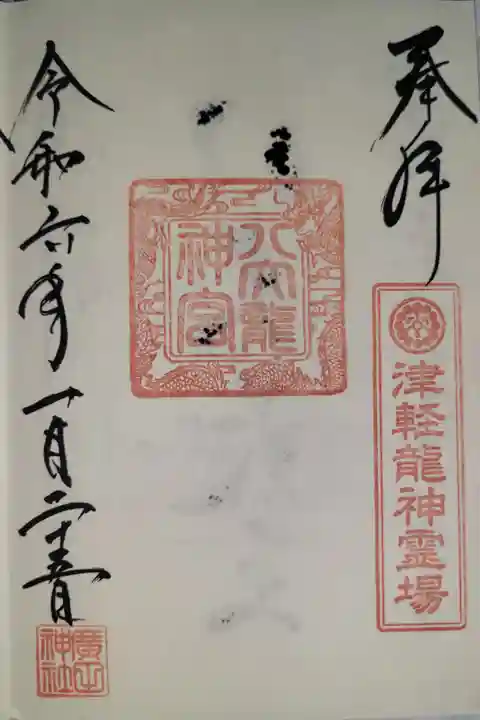 奉拝
津軽龍神霊場
八大龍
神宮
令和六年一月二十五日
廣田
神社